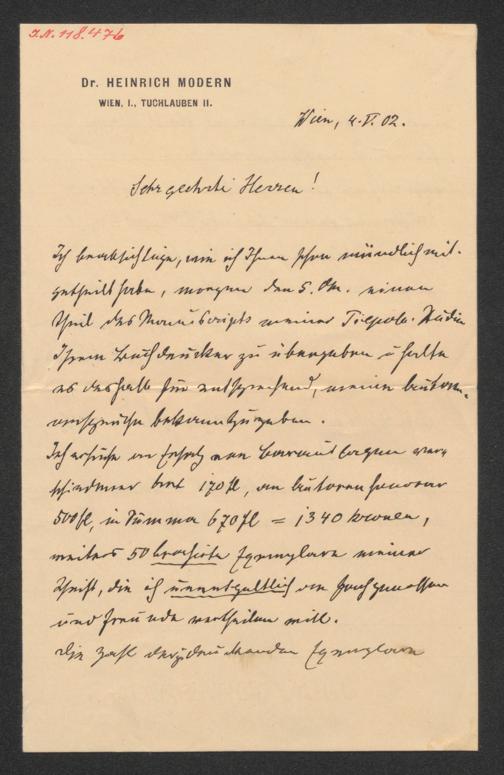 I.N. 118.476
Dr. HEINRICH MODERN
WIEN, I., TUCHLAUBEN 11.
Wien, 4.V.02.
Sehr geehrte Herren!
Ich beabsichtige, wie ich Ihnen schon mündlich mit-
getheilt habe, morgen den 5. einen
Theil des Manuscripts meiner Tiepolo-Studie
Ihrem Buchdrucker zu übergeben u halte
es deshalb für entsprechend, meine Autoren-
ansprüche bekanntzugeben.
Ich ersuche um Ersatz von Baarauslagen
170 fl, an Autorenhonorar
500 fl, in Summa 670 fl = 1340 Kronen,
weiters 50 broschirte Exemplare meiner
Schrift, die ich unentgeltlich an Fachgenossen
und Freunde vertheilen will.
Die Zahl der zu druckenden Exemplare